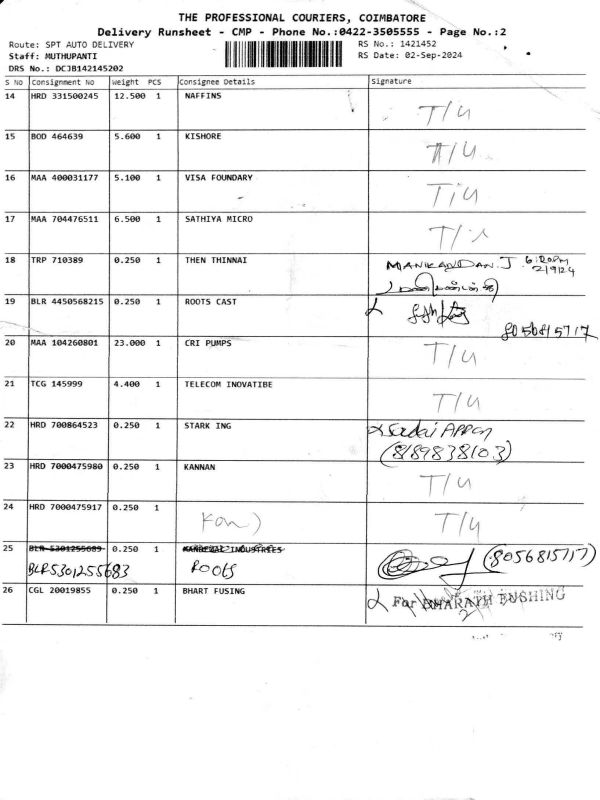 THE PROFESSIONAL COURIERS, COIMBATORE
Delivery Runsheet - CMP - Phone No.:0422-3505555 - Page No.:2
Route: SPT AUTO DELIVERY
RS No.: 1421452
Staff: MUTHUPANTI
RS Date: 02-Sep-2024
DRS No.: DCJB142145202
S No Consignment No Weight PCS Consignee Details Signature
14 HRD 331500245 12.500 1 NAFFINS T/4
15 BOD 464639 5.600 1 KISHORE T/4
16 MAA 400031177 5.100 1 VISA FOUNDARY T/4
17 MAA 704476511 6.500 1 SATHIYA MICRO
18 TRP 710389 0.250 1 THEN THINNAI MANIKANDAN.J 6:20PM
2/9/24
மணிகண்டன்
19 BLR 4450568215 0.250 1 ROOTS CAST
8056815717
20 MAA 104260801 23.000 1 CRI PUMPS T/4
21 TCG 145999 4.400 1 TELECOM INOVATIBE T/4
22 HRD 700864523 0.250 1 STARK ING Sudai APPan
(8189838103)
23 HRD 7000475980 0.250 1 KANNAN T/4
24 HRD 7000475917 0.250 1 T/4
25 BLR 5301255689 0.250 1 INDUSTRIES (8056815717)
BLR5301255683 ROOTS
26 CGL 20019855 0.250 1 BHART FUSING For BHARATH BUSHING